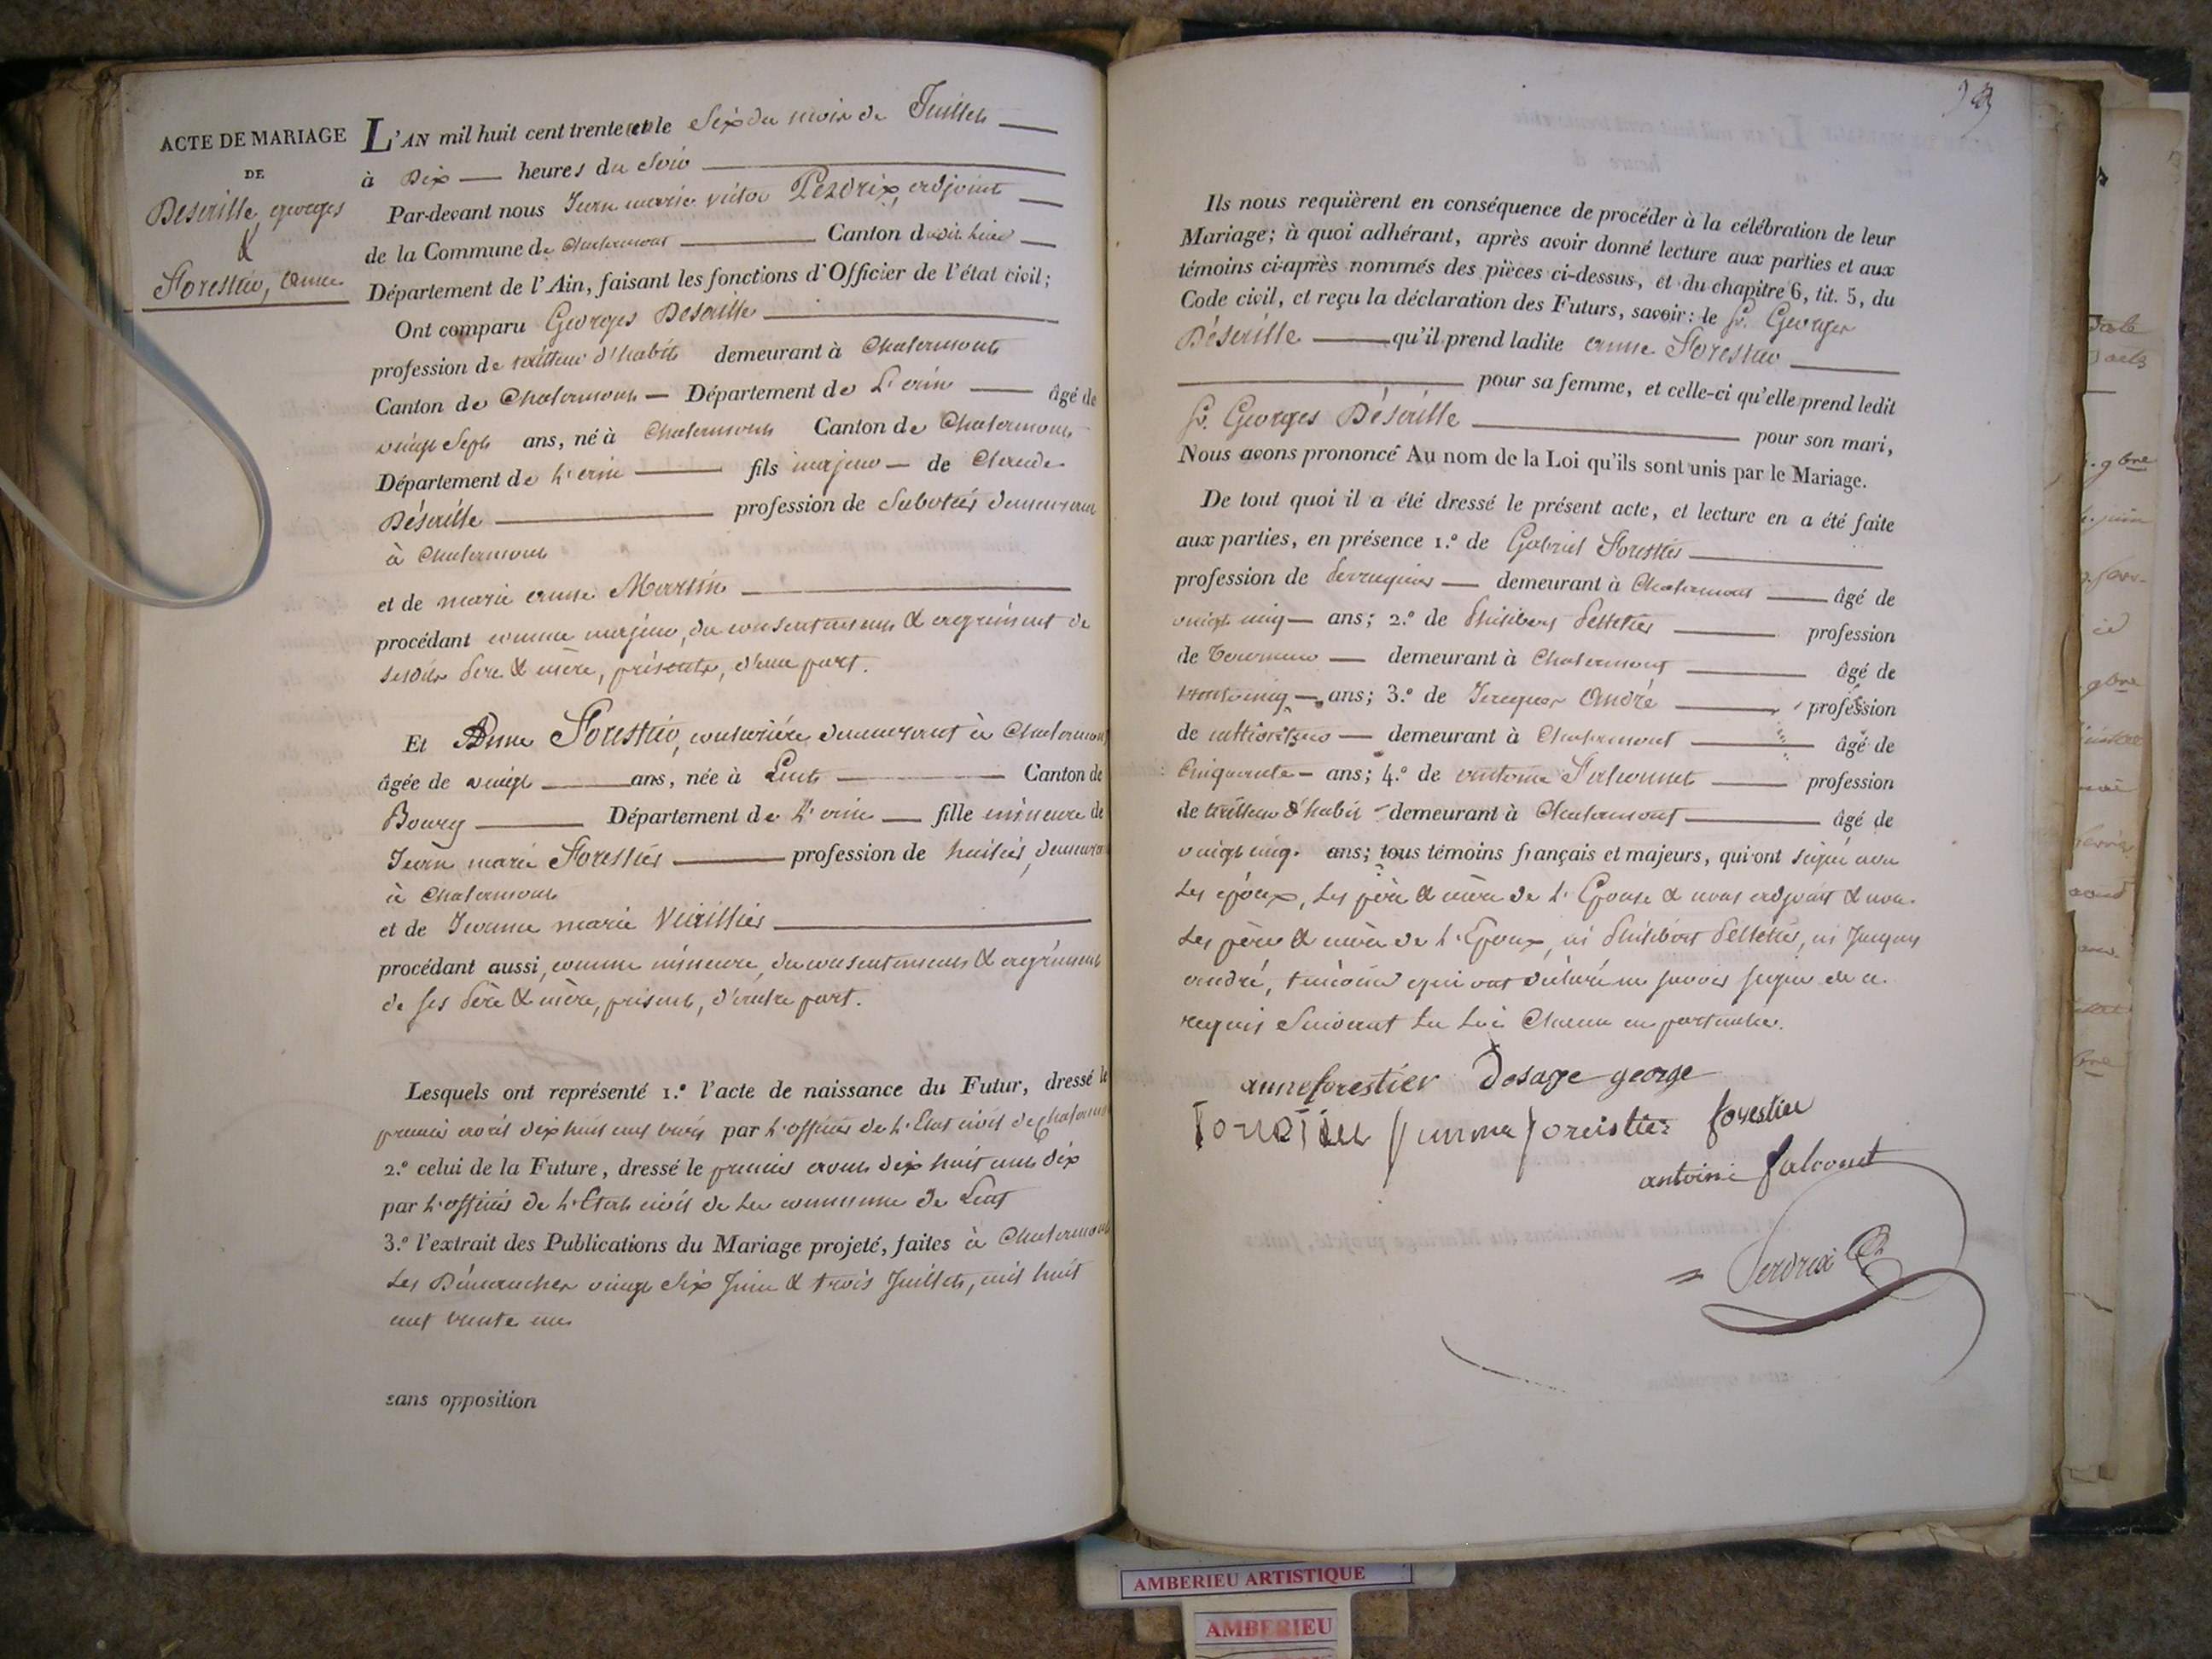 ACTE DE MARIAGE
DE
Deseille, georges
&
Forestier, anne
L'AN mil huit cent trente et le Six du mois de Juillet
à Dix heures du Soir
Par-devant nous Jean marie victor Perdrix, adjoint
de la Commune de Chalamont Canton dudit lieu
Département de l'Ain, faisant les fonctions d'Officier de l'état civil;
Ont comparu Georges
profession de tailleur d'habits demeurant à Chalamont
Canton de Chalamont Département de L'ain âgé de
vingt Sept ans, né à Chalamont Canton de Chalamont
Département de L'ain fils majeur de Claude
profession de Sabotier demeurant
à Chalamont
et de marie anne Martin
procédant comme majeur, du consentement & agrément de
ses père & mère, présents, d'une part.
Et Anne Forestier, couturière demeurant à Chalamont
âgée de vingt ans, née à Lent Canton de
Bourg Département de L'ain fille mineure de
Jean marie Forestier profession de huissier, demeurant
à Chalamont
et de Jeanne marie
procédant aussi, comme mineure, du consentement & agrément
de ses Père & mère, présents, d'autre part.
Lesquels ont représenté 1.° l'acte de naissance du Futur, dressé le
premier avril dix huit cent trois par l'officier de l'Etat civil de Chalamont
2.° celui de la Future, dressé le premier août dix huit cent dix
par l'officier de l'Etat civil de la commune de Lent
3.° l'extrait des Publications du Mariage projeté, faites à Chalamont
Les Dimanches vingt Six Juin & trois Juillet, mil huit
cent trente un
sans opposition
Ils nous requièrent en conséquence de procéder à la célébration de leur
Mariage; à quoi adhérant, après avoir donné lecture aux parties et aux
témoins ci-après nommés des pièces ci-dessus, et du chapitre 6, tit. 5, du
Code civil, et reçu la déclaration des Futurs, savoir: le Sr. Georges
qu'il prend ladite anne Forestier
pour sa femme, et celle-ci qu'elle prend ledit
Sr. Georges pour son mari,
Nous avons prononcé Au nom de la Loi qu'ils sont unis par le Mariage.
De tout quoi il a été dressé le présent acte, et lecture en a été faite
aux parties, en présence 1.° de Gabriel Forestier
profession de Perruquier demeurant à Chalamont âgé de
vingt cinq ans; 2.° de Philibert Pelletier profession
de Tourneur demeurant à Chalamont âgé de
trente cinq ans; 3.° de Jacques André profession
de cultivateur demeurant à Chalamont âgé de
Cinquante ans; 4.° de antoine Falconnet profession
de tailleur d'habit demeurant à Chalamont âgé de
vingt cinq ans; tous témoins français et majeurs, qui ont signé avec
Les époux, Les père & mère de L'Epouse & nous adjoint & non
Les père & mère de L'Epoux, ni Philibert Pelletier, ni Jacques
andré, témoins qui ont déclaré ne savoir signer de ce
requis Suivant La Loi Chacun en particulier.
anne forestier Desage george
forestier
antoine falconet
Perdrix
AMBERIEU ARTISTIQUE
AMBERIEU